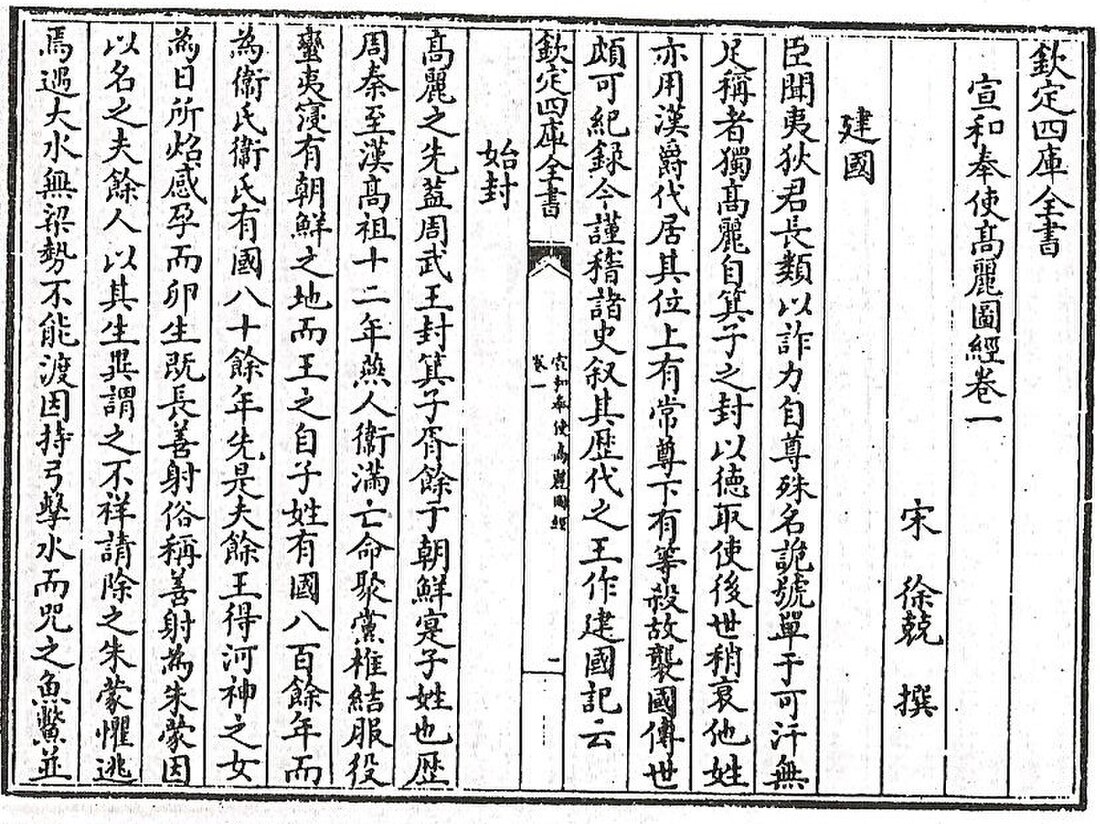 欽定四庫全書
宣和奉使髙麗圖經卷一
宋 徐兢 撰
建國
臣聞夷狄君長類以詐力自尊殊名詭號單于可汗無
足稱者獨髙麗自箕子之封以徳取侯後世稍衰他姓
亦用漢爵代居其位上有常尊下有等殺故襲國傳世
頗可紀録今謹稽諸史叙其歴代之王作建國記云
欽定四庫全書
宣和奉使髙麗圖經
卷一
一
始封
髙麗之先葢周武王封箕子胥餘于朝鮮寔子姓也歴
周秦至漢髙祖十二年燕人衛滿亡命聚黨椎結服役
蠻夷寖有朝鮮之地而王之自子姓有國八百餘年而
為衛氏衛氏有國八十餘年先是夫餘王得河神之女
為日所炤感孕而卵生既長善射俗稱善射為朱蒙因
以名之夫餘人以其生異謂之不祥請除之朱蒙懼逃
焉遇大水無梁勢不能渡因持弓擊水而咒之魚鼈並